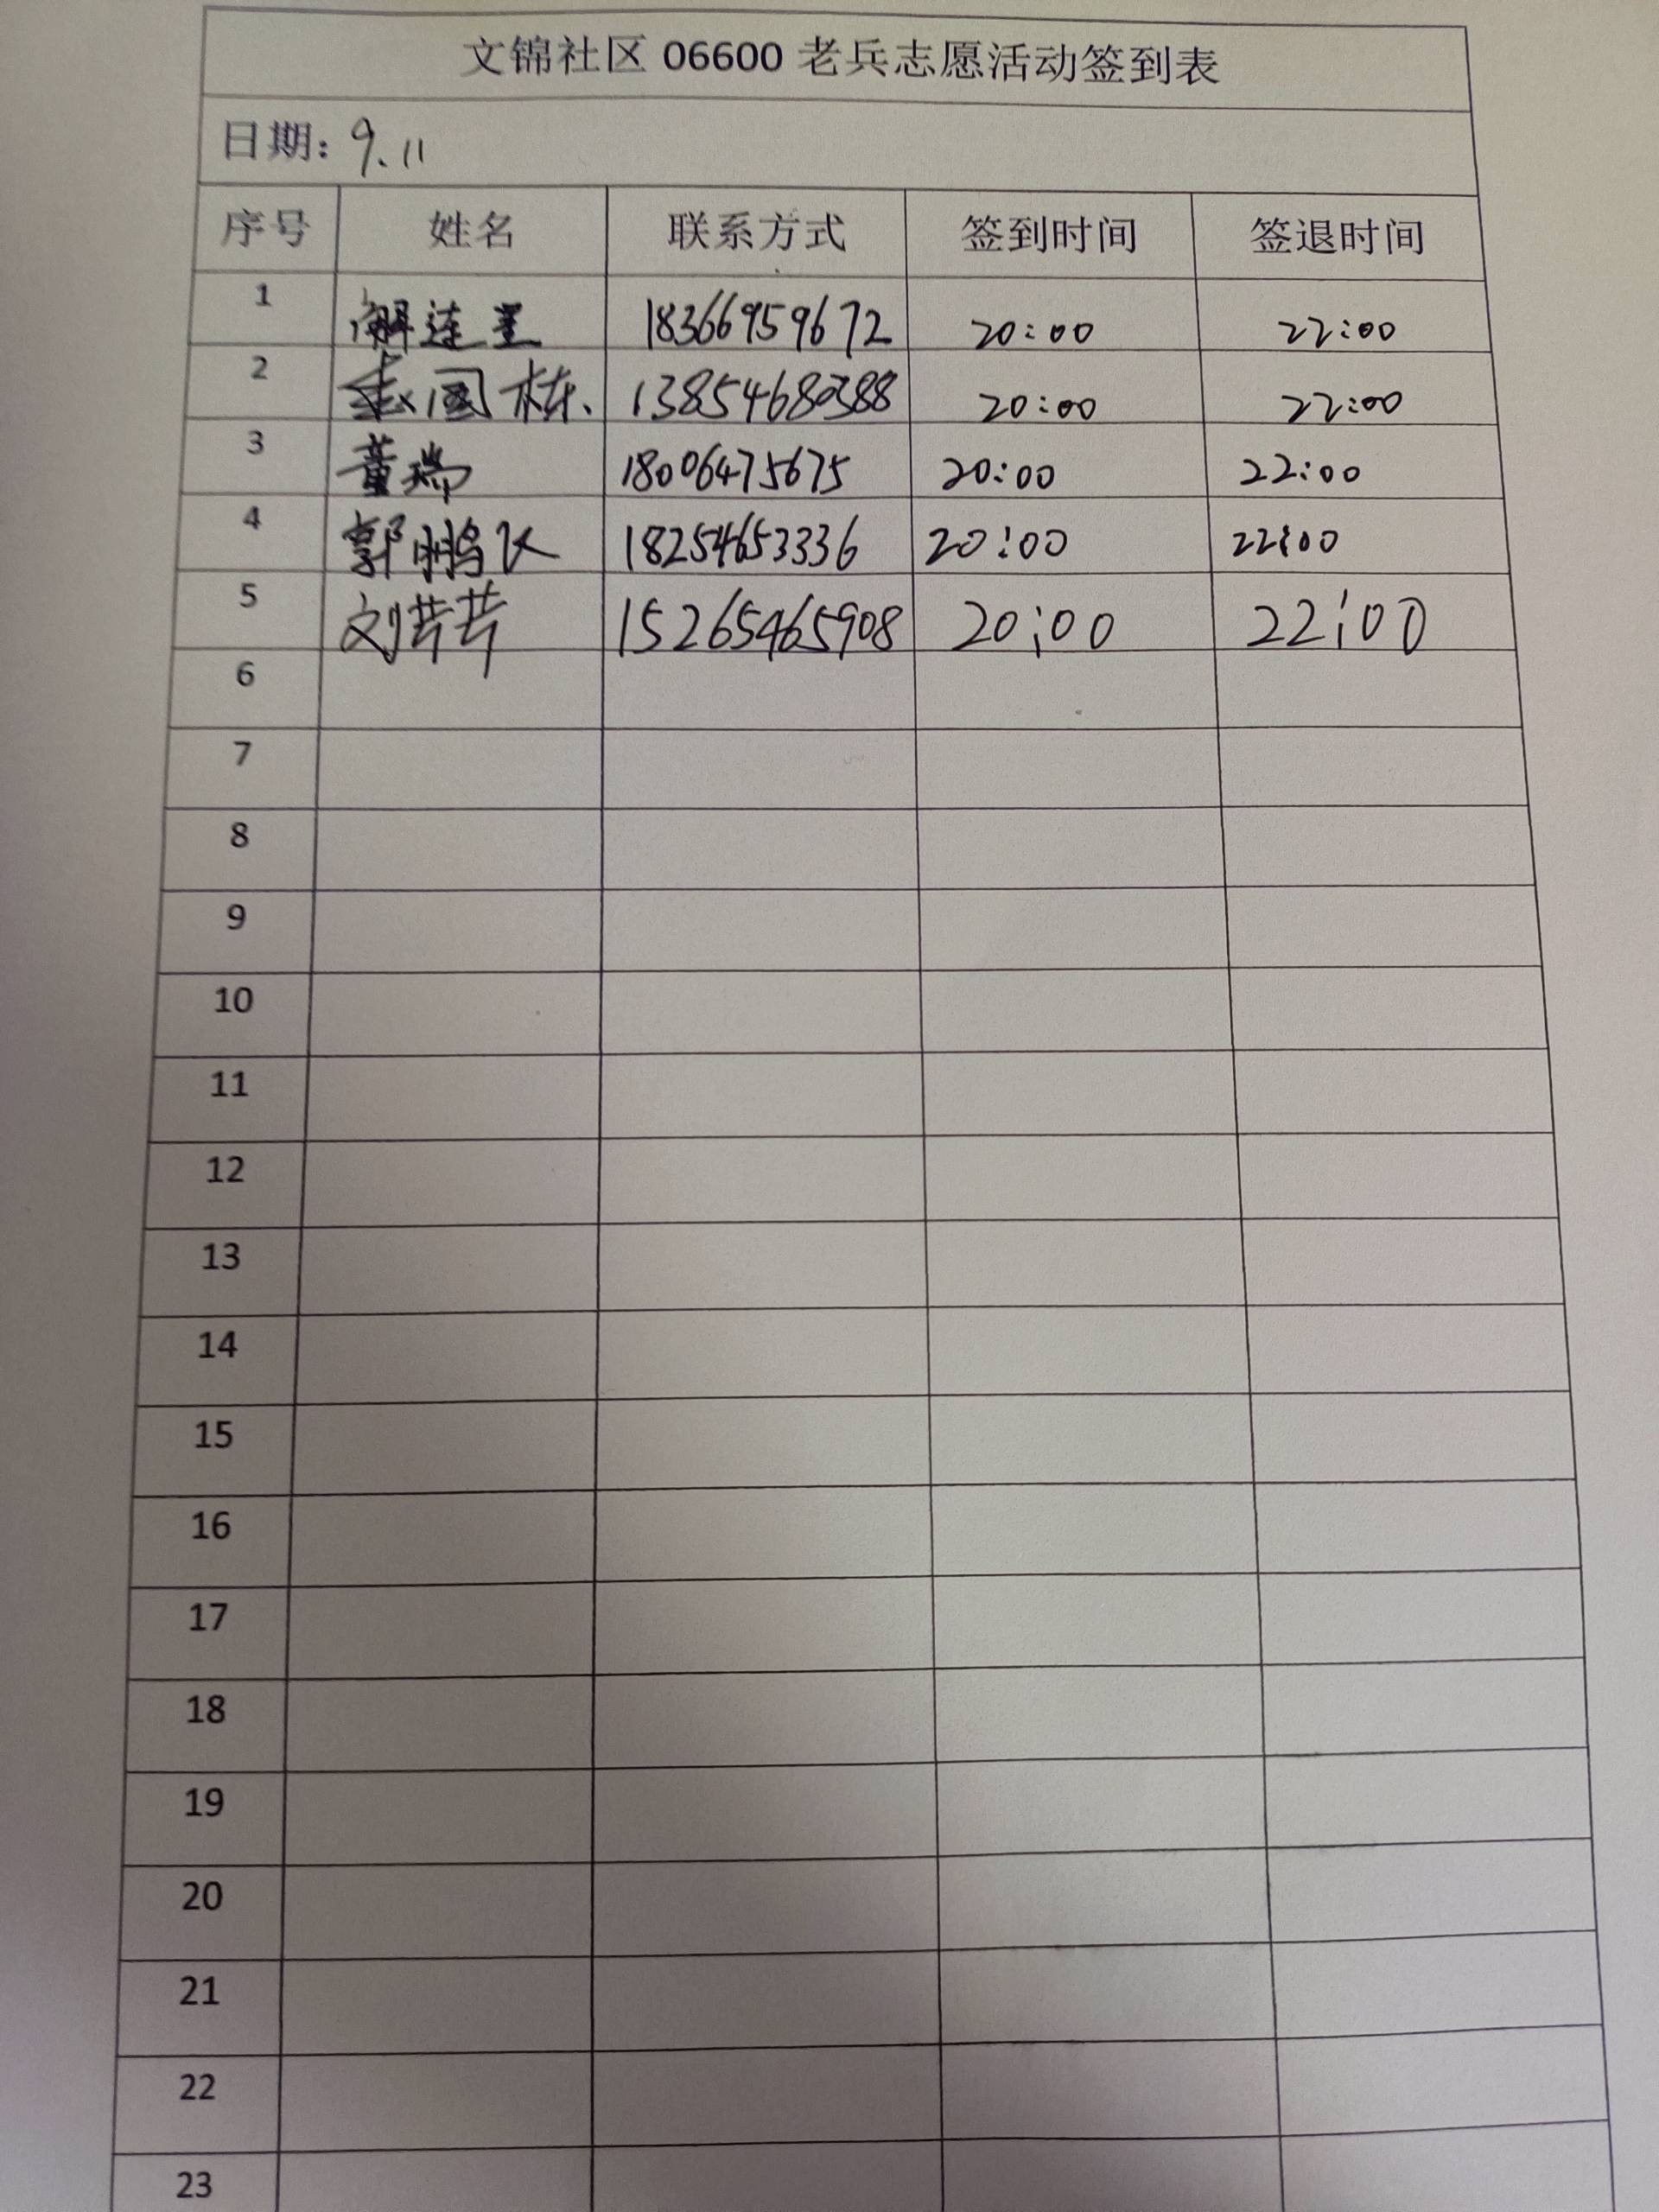 文锦社区 06600 老兵志愿活动签到表
日期: 9.11
序号 姓名 联系方式 签到时间 签退时间
1 解连星 18366959672 20:00 22:00
2 国栋. 13854680388 20:00 22:00
3 董瑞 18006475675 20:00 22:00
4 郭鹏飞 18254653336 20:00 22:00
5 刘芸芸 15265465908 20:00 22:00
6
7
8
9
10
11
12
13
14
15
16
17
18
19
20
21
22
23